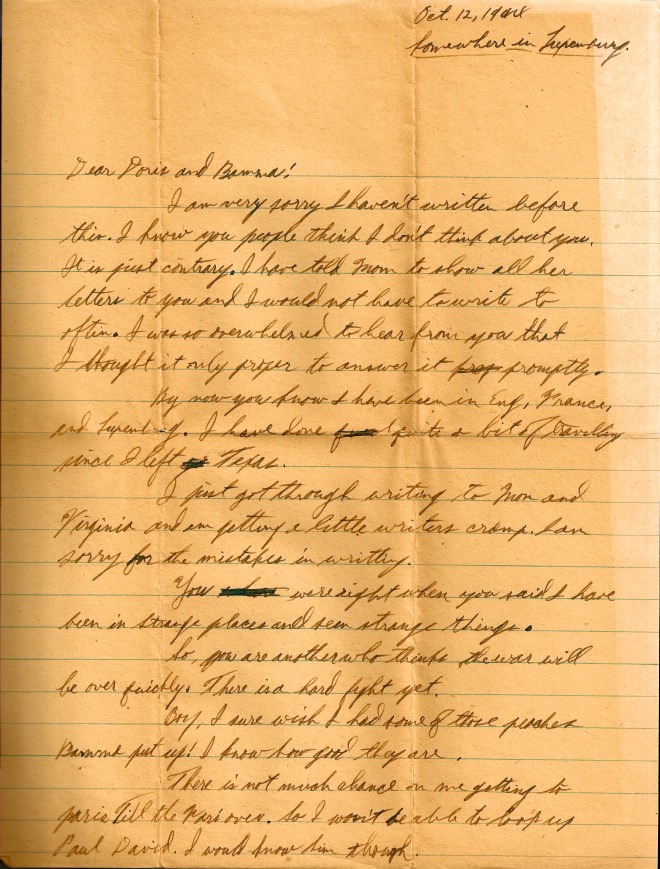 Oct. 12, 1944
Somewhere in Luxenburg.
Dear Doris and Bamma!
I am very sorry I haven't written before
this. I know you people think I don't think about you.
It is just contrary. I have told Mom to show all her
letters to you and I would not have to write to
often. I was so overwhelmed to hear from you that
I thought it only proper to answer it promptly.
By now you know I have been in Eng, France,
and Luxenburg. I have done quite a bit of travelling
since I left Texas.
I just got through writing to Mom and
Virginia and am getting a little writers cramp. I am
sorry for the mistakes in writting.
You were right when you said I have
been in strange places and seen strange things.
So, you are another who thinks the war will
be over quickly. There is a hard fight yet.
Boy, I sure wish I had some of those peaches
Bamma put up! I know how good they are.
There is not much chance on me getting to
paris Till the War's over. So I won't be able to look up
Paul David. I would know him though.